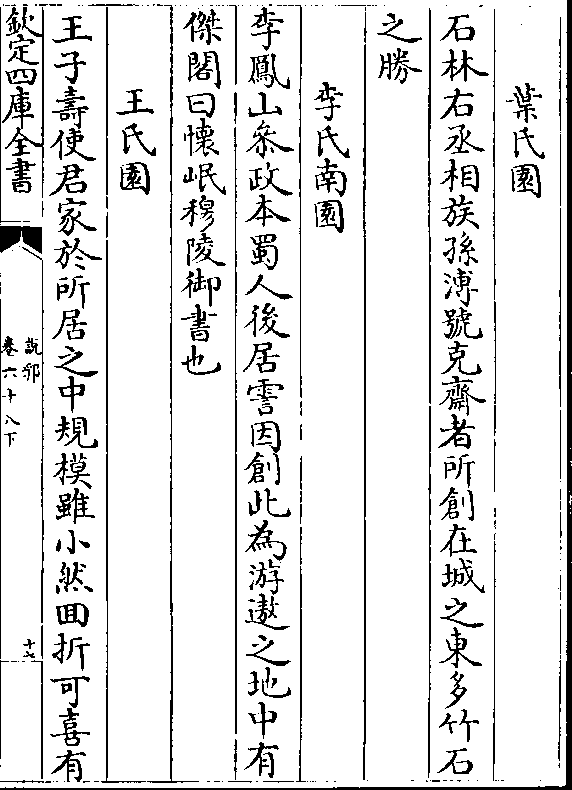 葉氏園
石林右丞相族孫溥號克齋者所創在城之東多竹石
之勝
李氏南園
李鳳山叅政本蜀人後居霅因創此為游遨之地中有
傑閣曰懷岷穆陵御書也
王氏園
王子壽使君家於所居之中規模雖小然囬折可喜有
欽定四庫全書
說郛
卷六十八下
十七